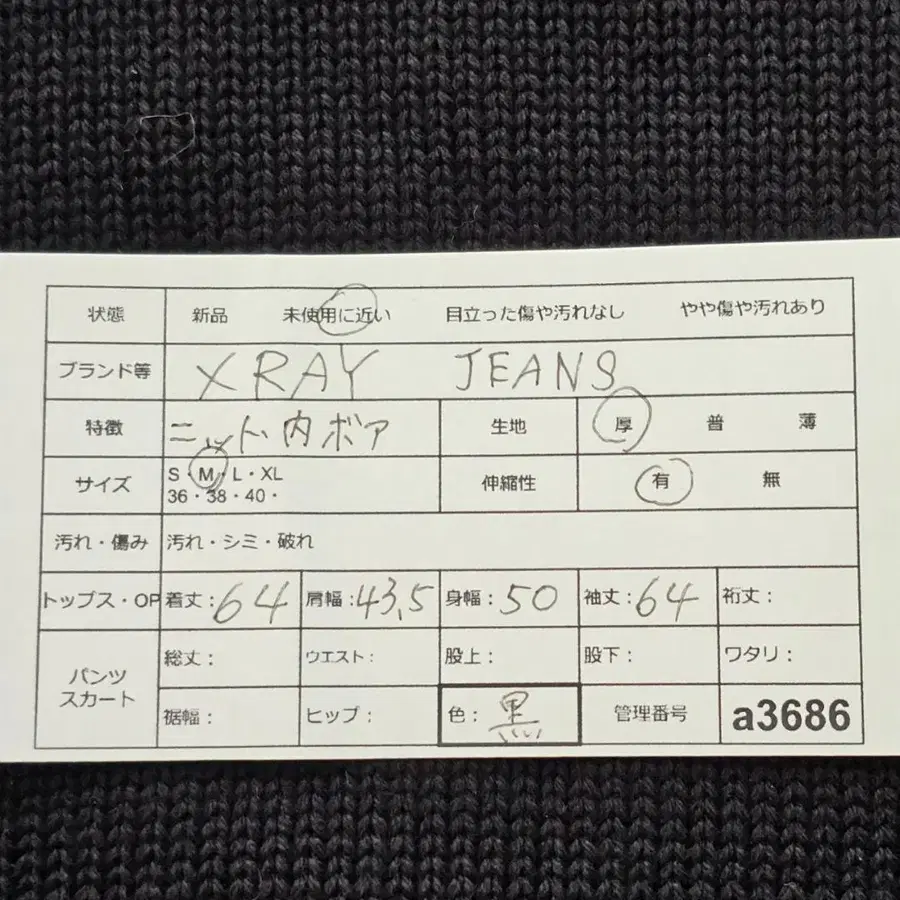 状態 新品 未使用に近い 目立った傷や汚れなし やや傷や汚れあり
ブランド等 XRAY JEANS
特徴 ニット内ボア 生地 厚 普 薄
サイズ S・M・L・XL 伸縮性 有 無
36・38・40・
汚れ・傷み 汚れ・シミ・破れ
トップス・OP 着丈：64 肩幅：43.5 身幅：50 袖丈：64 裄丈：
パンツ スカート 総丈： ウエスト： 股上： 股下： ワタリ：
裾幅： ヒップ： 色：黒 管理番号 a3686